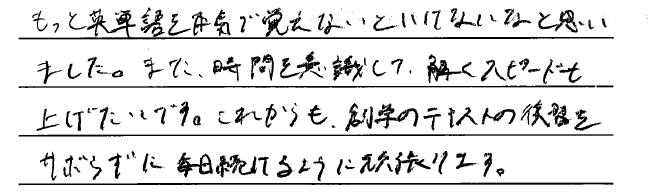 もっと英単語を本気で覚えないといけないなと思い
ました。また、時間を意識して、解くスピードも
上げたいです。これからも、創学のテキストの復習を
サボらずに毎日続けるように頑張ります。